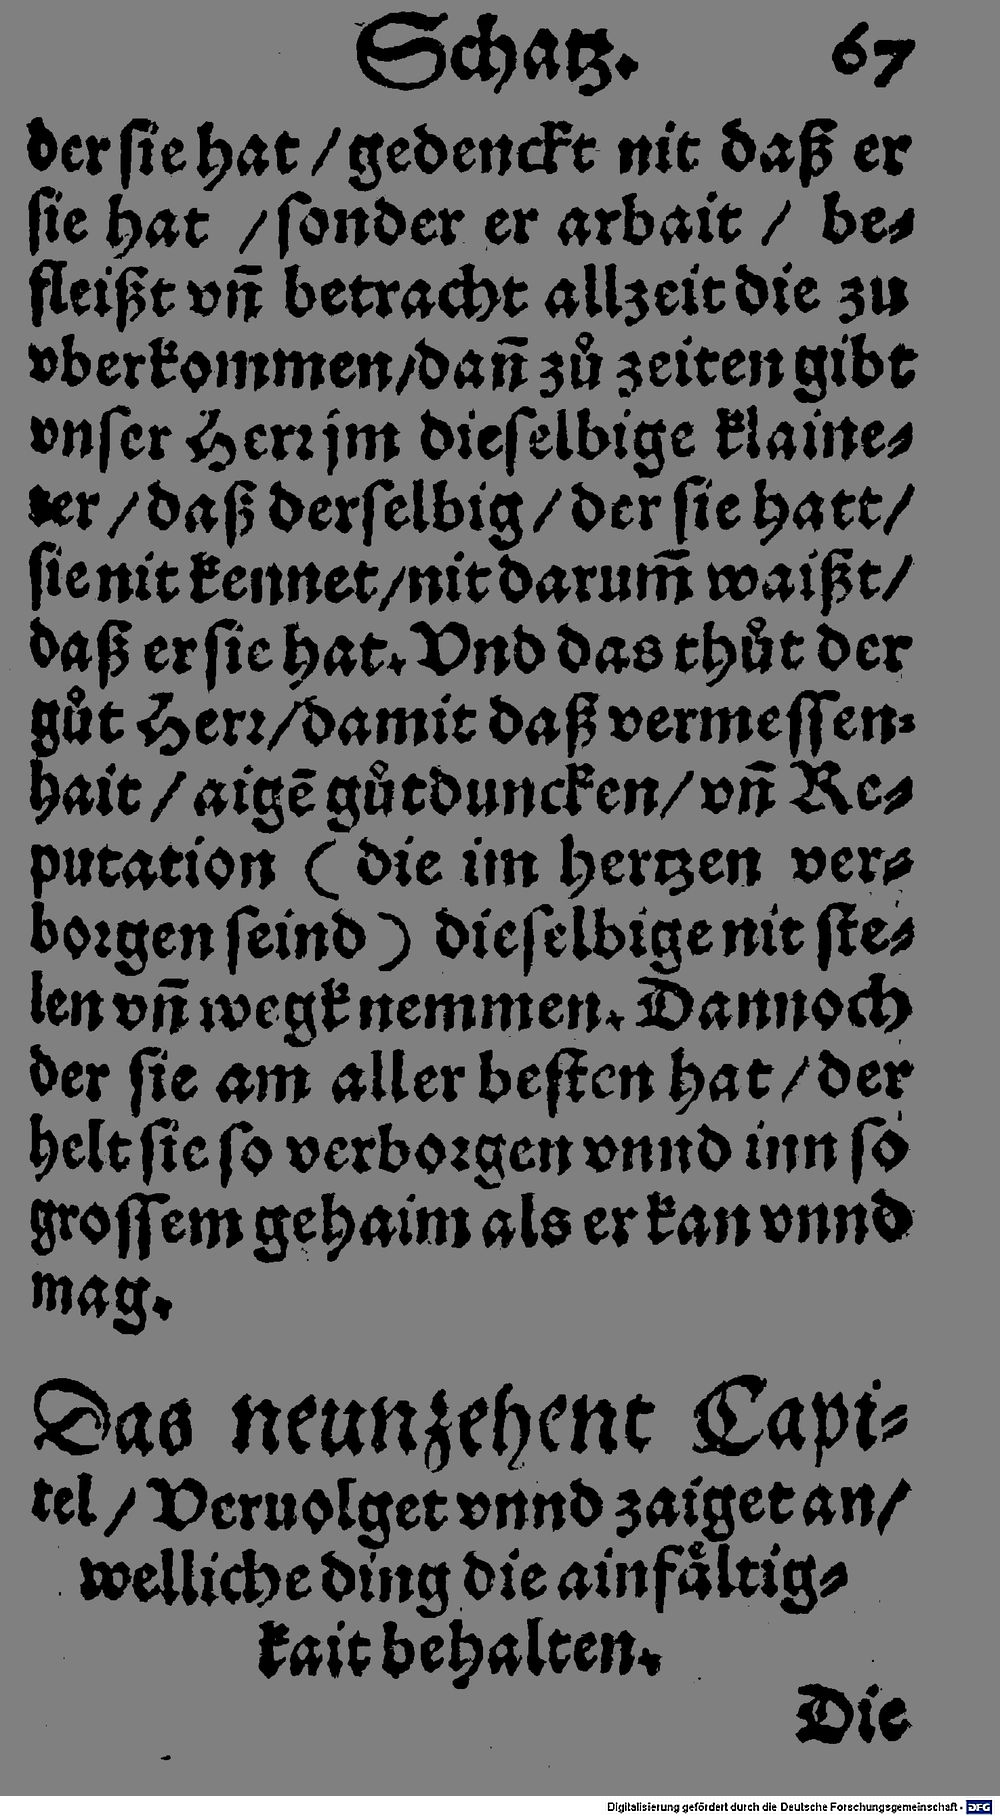 Schatz. 67
der ſie hat / gedenckt nit daß er
ſie hat / ſonder er arbait / be⸗
fleißt vn̄ betracht allzeit die zu
vberkommen / dan̄ zů zeiten gibt
vnſer Herꝛ jm dieſelbige klaine⸗
ter / daß derſelbig / der ſie hatt /
ſie nit kennet / nit darum̄ waißt /
daß er ſie hat. Vnd das thůt der
gůt Herꝛ / damit daß vermeſſen⸗
hait / aigē gůtduncken / vn̄ Re⸗
putation ( die im hertzen ver⸗
boꝛgen ſeind ) dieſelbige nit ſte⸗
len vn̄ wegk nemmen. Dannoch
der ſie am aller beſten hat / der
helt ſie ſo verboꝛgen vnnd inn ſo
groſſem gehaim als er kan vnnd
mag.
Das neunzehent Capi⸗
tel / Veruolget vnnd zaiget an /
welliche ding die ainfaͤltig⸗
kait behalten.
Die
Digitalisierung gefördert durch die Deutsche Forschungsgemeinschaft - DFG